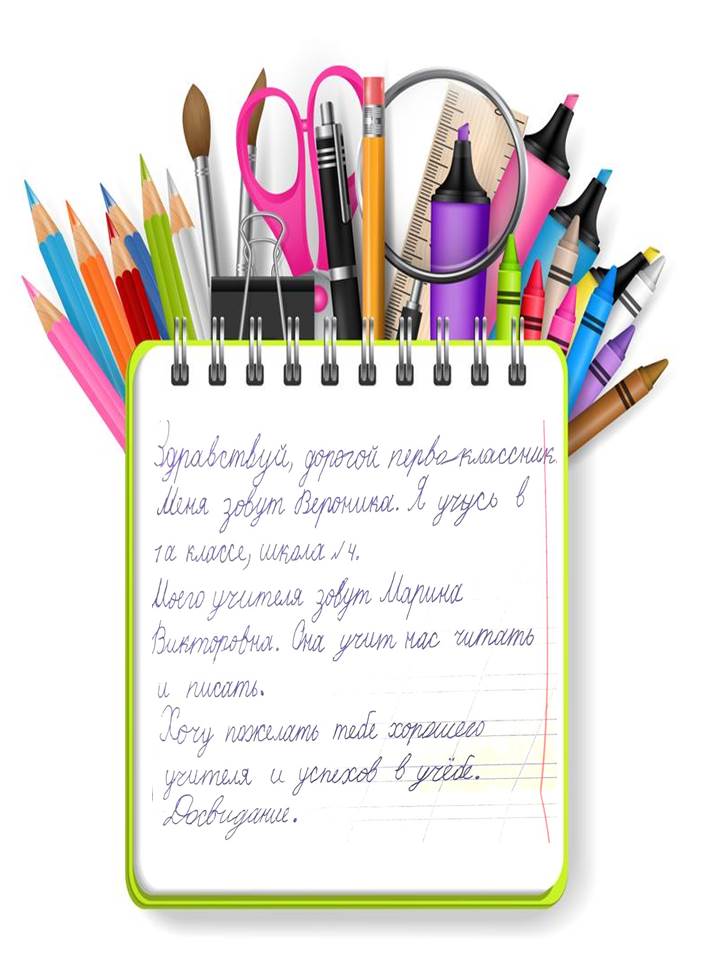 Здравствуй, дорогой первоклассник.
Меня зовут Вероника. Я учусь в
1а классе, школа №4.
Моего учителя зовут Марина
Викторовна. Она учит нас читать
и писать.
Хочу пожелать тебе хорошего
учителя и успехов в учёбе.
Досвидание.